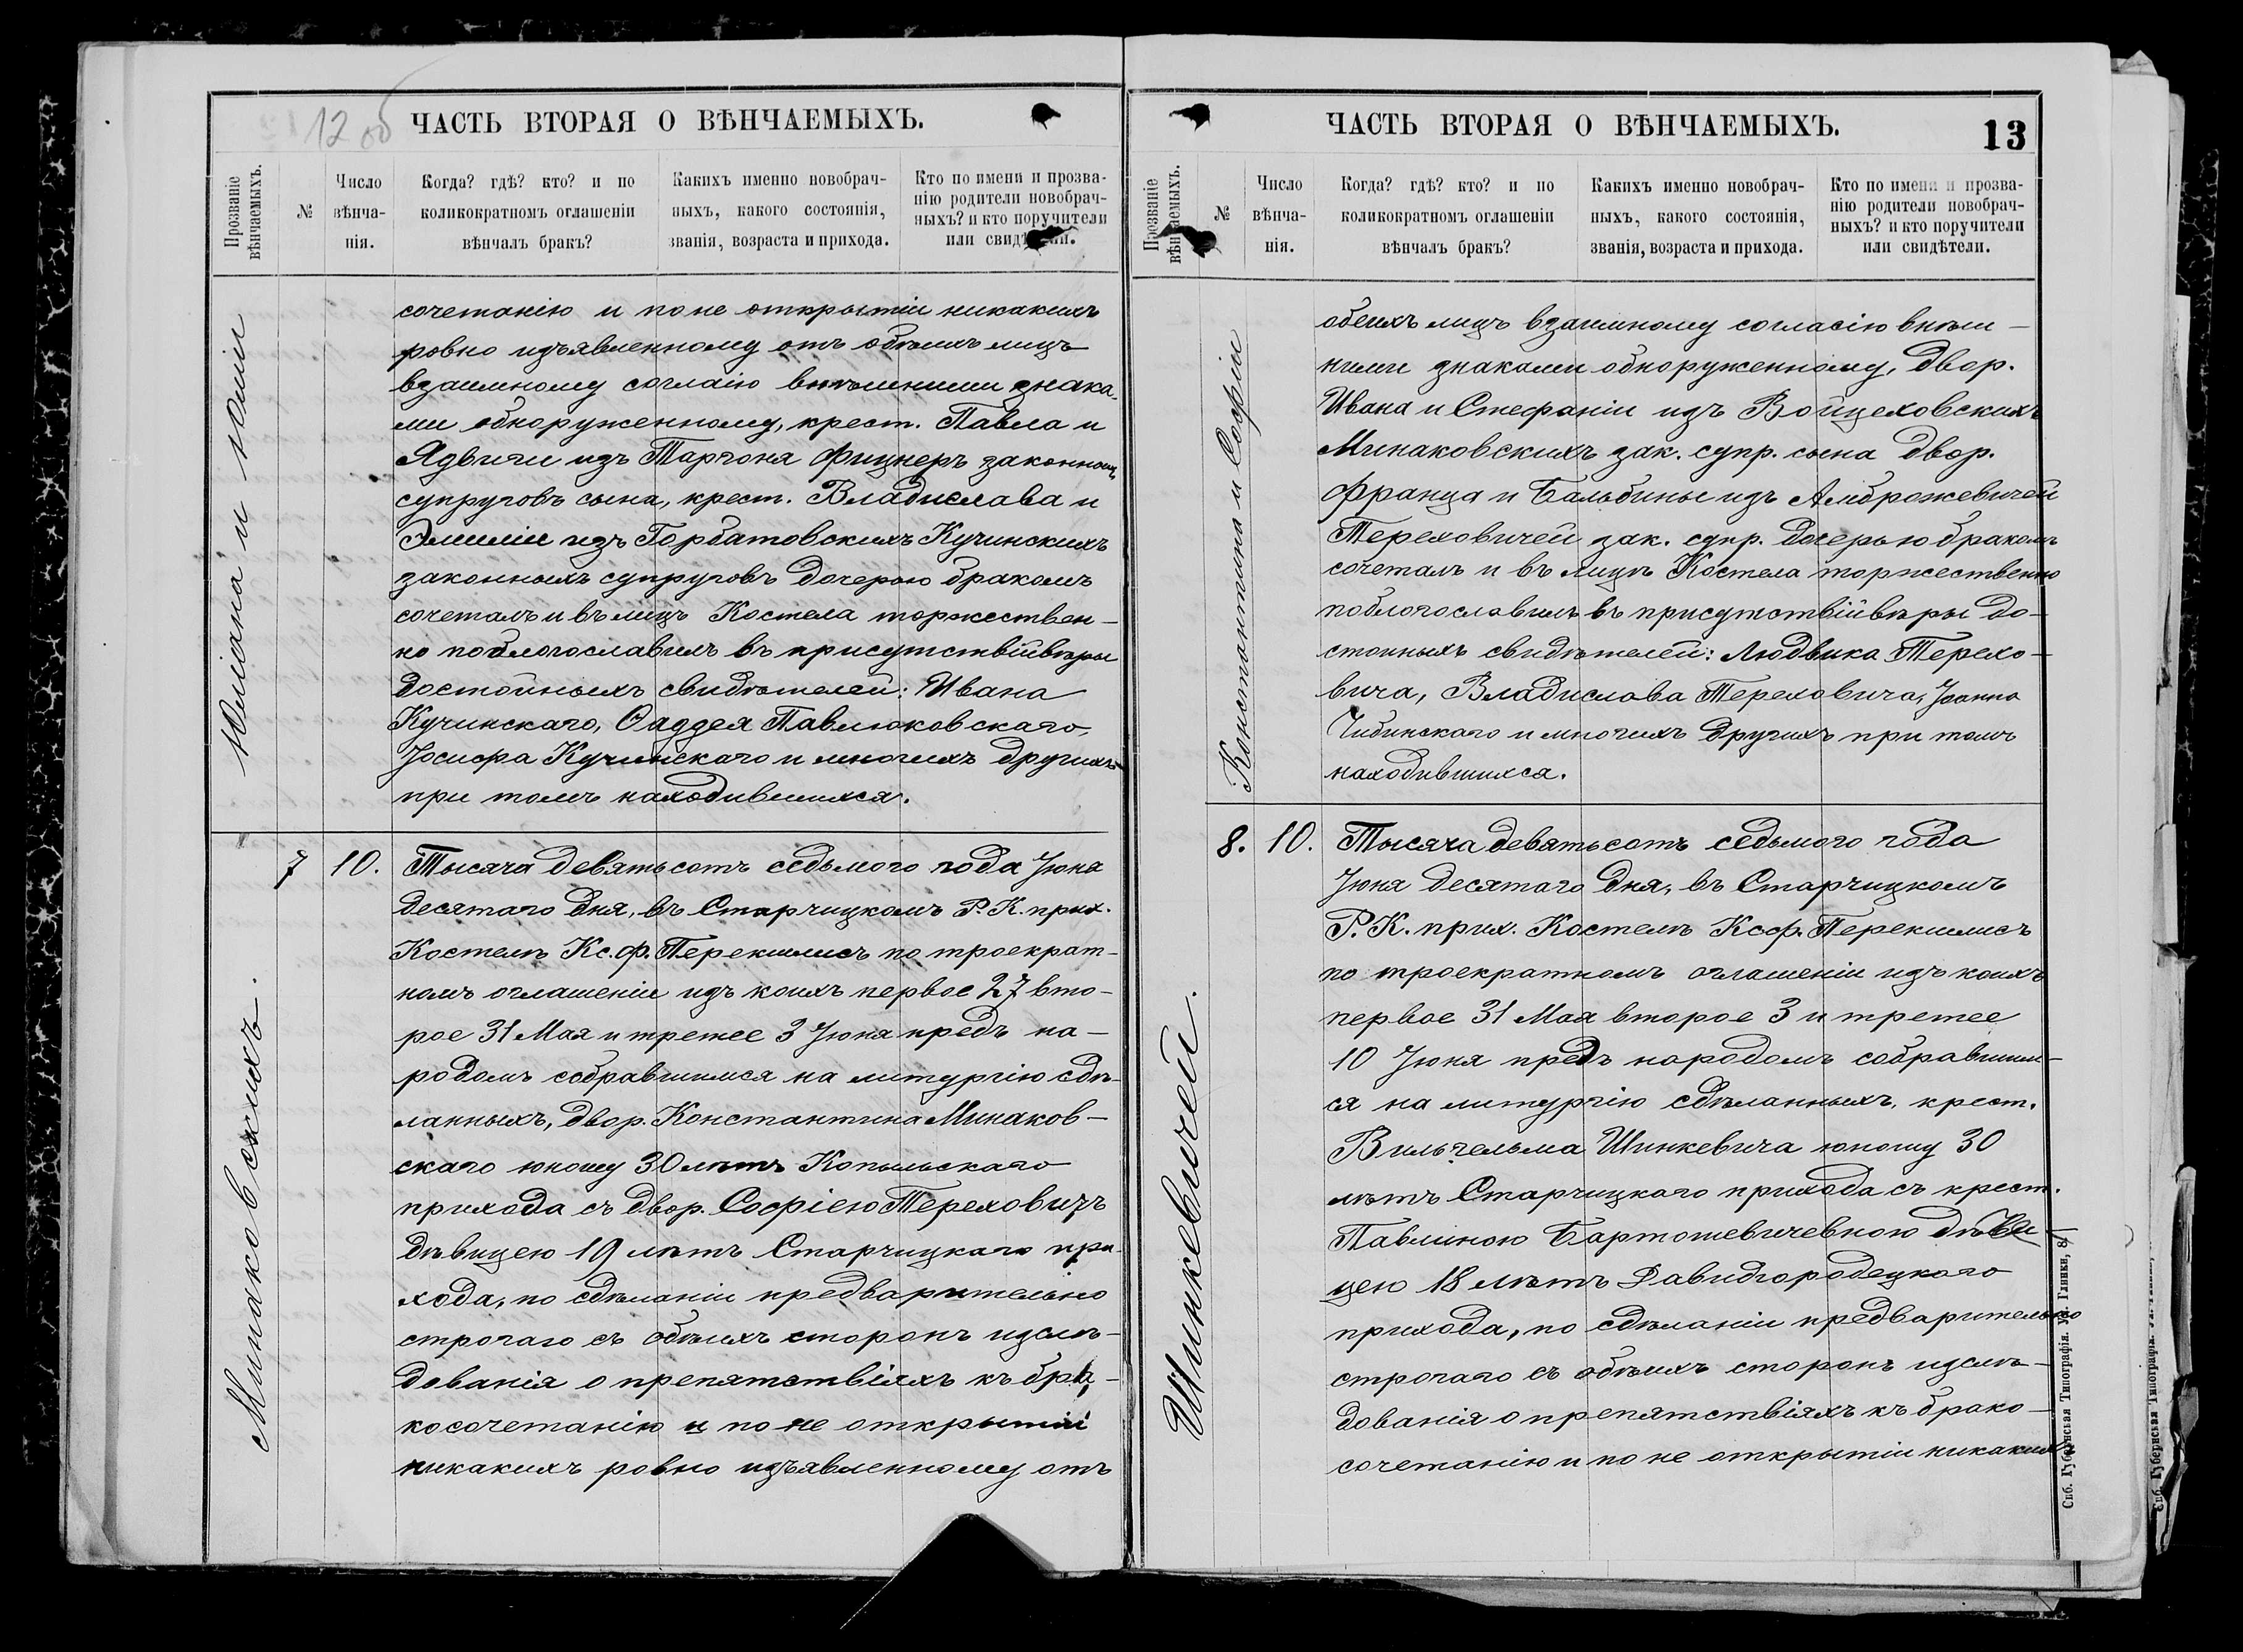 12 об
ЧАСТЬ ВТОРАЯ О ВѢНЧАЕМЫХЪ.
Прозваніе
вѣнчаемыхъ.
№
Число
вѣнча-
нія.
Когда? гдѣ? кто? и по
коликократномъ оглашеніи
вѣнчалъ бракъ?
Какихъ именно новобрач-
ныхъ, какого состоянія,
званія, возраста и прихода.
Кто по имени и прозва-
нію родители новобрач-
ныхъ? и кто поручители
или свидѣтели.
Юліана и Юліи
сочетанію и по не открытіи никакихъ
ровно изъявленному отъ обѣихъ лицъ
взаимному согласію внѣшними знака-
ми обноруженному, крест. Павла и
Ядвиги изъ Таргоня Фицнеръ законных
супруговъ сына, крест. Владислава и
Эмиліи изъ Горбатовскихъ Кучинскихъ
законныхъ супруговъ дочерью бракомъ
сочеталъ и въ лицѣ Костела торжествен-
но поблогославилъ въ присутствій вѣры
достойныхъ свидѣтелей: Ивана
Кучинскаго, Фаддея Павлюковскаго,
Іосифа Кучинскаго и многихъ другихъ
при томъ находившихся.
Минаковскихъ.
7 10. Тысяча девятьсотъ седьмого года Іюня
десятаго дня, въ Старчицкомъ Р. К. прих.
Костелѣ Кс. Ф. Перекшлисъ по троекрат-
номъ оглашеніи изъ коихъ первое 27 вто-
рое 31 Мая и третее 3 Іюня предъ на-
родомъ собравшимся на литургію сдѣ-
ланныхъ, двор. Константина Минаков-
скаго юношу 30 лѣтъ Копыльскаго
прихода съ двор. Софіею Тереховичъ
дѣвицею 19 лѣтъ Старчицкаго при-
хода, по сдѣланіи предварительно
строгаго съ обѣихъ сторонъ изслѣ-
дованія о препятствіяхъ къ бра-
косочетанію и по не открытіи
никакихъ ровно изъявленному отъ
ЧАСТЬ ВТОРАЯ О ВѢНЧАЕМЫХЪ.
13
Прозваніе
вѣнчаемыхъ.
№
Число
вѣнча-
нія.
Когда? гдѣ? кто? и по
коликократномъ оглашеніи
вѣнчалъ бракъ?
Какихъ именно новобрач-
ныхъ, какого состоянія,
званія, возраста и прихода.
Кто по имени и прозва-
нію родители новобрач-
ныхъ? и кто поручители
или свидѣтели.
Константина и Софіи
обеихъ лицъ взаимному согласію внѣш-
ними знаками обноруженному, двор.
Ивана и Стефаніи изъ Войцеховскихъ
Минаковскихъ зак. супр. сына двор.
Франца и Бальбины изъ Амброжевичей
Тереховичей зак. супр. дочерью бракомъ
сочеталъ и въ лицѣ Костела торжественно
поблогославилъ въ присутствій вѣры до-
стоиныхъ свидѣтелей: Людвика Терехо-
вича, Владислава Тереховича, Іоанна
Чибинскаго и многихъ другихъ при томъ
находившихся.
Шинкевичей.
8. 10. Тысяча девятьсотъ седьмого года
Іюня десятаго дня, въ Старчицкомъ
Р. К. прих. Костелѣ Ксф. Перекшлисъ
по троекратномъ оглашеніи изъ коихъ
первое 31 Мая второе 3 и третее
10 Іюня предъ народомъ собравшим-
ся на литургію сдѣланныхъ, крест.
Вильгельма Шинкевича юношу 30
лѣтъ Старчицкаго прихода съ крест.
Павлиною Бартошевичевною дѣви-
цею 18 лѣтъ Давидгородецкаго
прихода, по сдѣланіи предварительно
строгаго съ обѣихъ сторонъ изслѣ-
дованія о препятствіяхъ къ брако-
сочетанію и по не открытіи никакихъ
Спб. Губернская Типографія. Ул. Глинки, 8